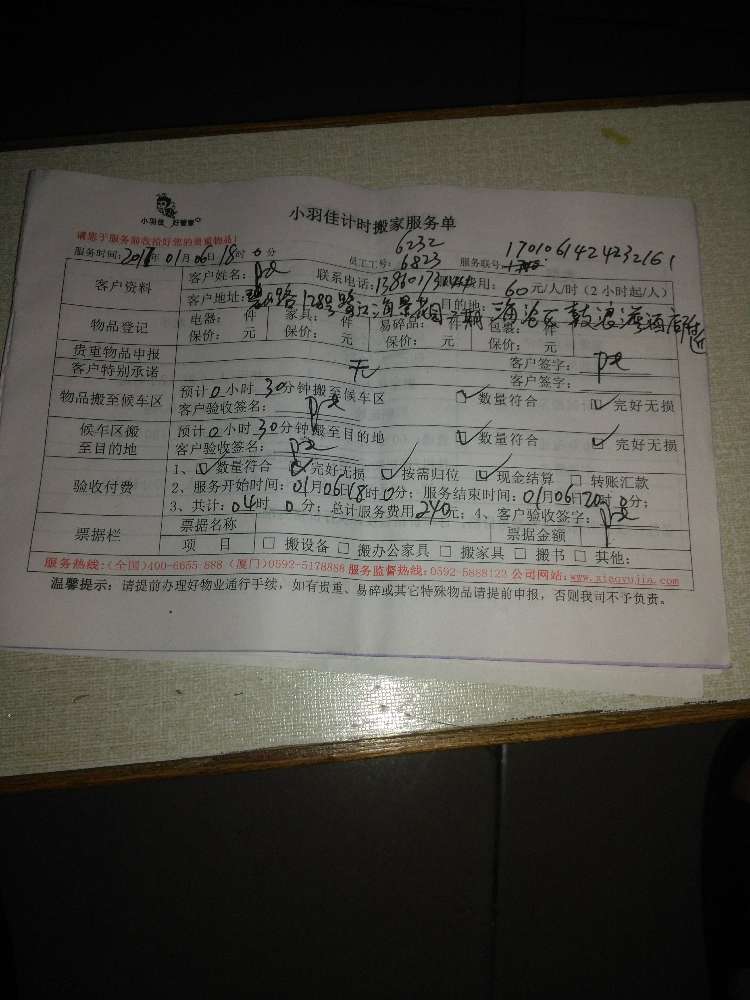 小羽佳 好管家
小羽佳计时搬家服务单
请您于服务前收拾好您的贵重物品!
6232
服务时间:2017年01月06日18时0分 员工工号:6823 服务联号:1701061424232161
客户资料 客户姓名: 联系电话: 费用:60元/人/时(2小时起/人)
客户地址: 路1289号 海景花园二期 目的地:海沧区鼓浪湾酒店附近
物品登记 电器: 件 家具: 件 易碎品: 件 包裹: 件
保价: 元 保价: 元 保价: 元 保价: 元
贵重物品申报 无 客户签字:
客户特别承诺 客户签字:
物品搬至候车区 预计0小时30分钟搬至候车区 数量符合 完好无损
客户验收签名:
候车区搬至目的地 预计0小时30分钟搬至目的地 数量符合 完好无损
客户验收签名:
验收付费 1、数量符合 完好无损 按需归位 现金结算 转账汇款
2、服务开始时间:01月06日18时0分;服务结束时间:01月06日20时0分;
3、共计:04时0分;总计服务费用240元;4、客户验收签字:
票据栏 票据名称 票据金额
项 目 搬设备 搬办公家具 搬家具 搬书 其他:
服务热线:(全国)400-6655-888 (厦门)0592-5178888 服务监督热线:0592-5888123 公司网站:www.xiaoyujia.com
温馨提示:请提前办理好物业通行手续,如有贵重、易碎或其它特殊物品请提前申报,否则我司不予负责。